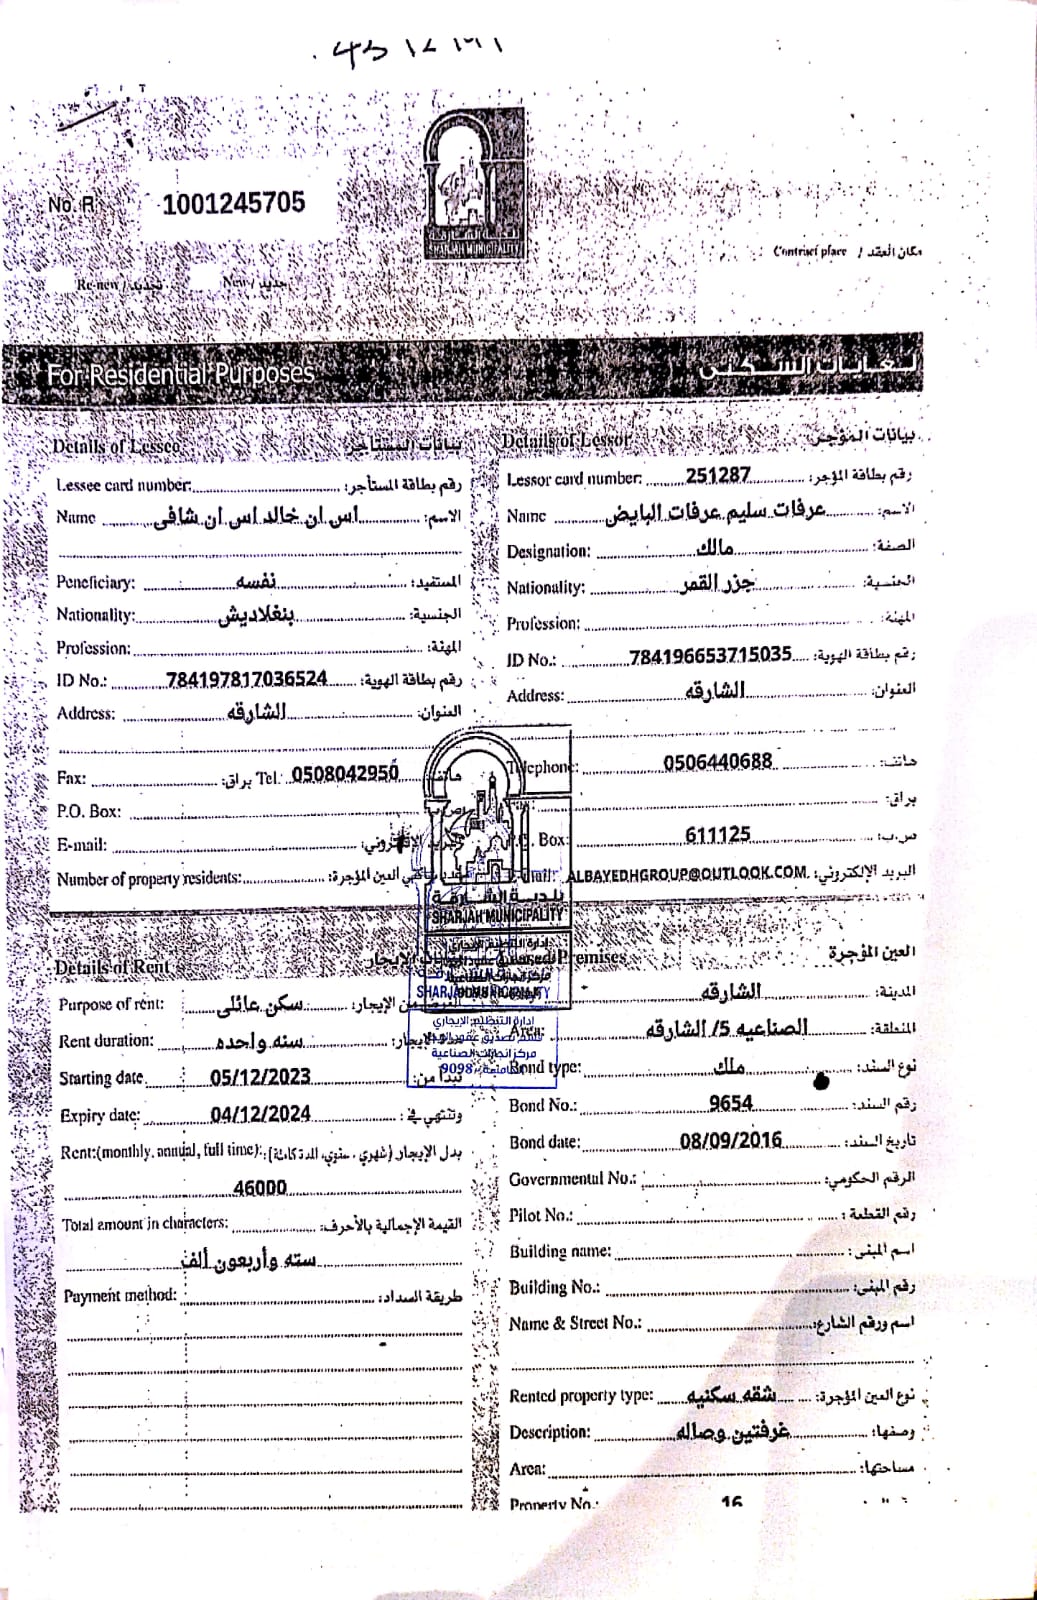 No. R 1001245705
SHARJAH MUNICIPALITY
Contract place / مكان العقد
Re-new / تجديد New / جديد
For Residential Purposes لغايات السكنى
Details of Lessee بيانات المستأجر
Lessee card number: رقم بطاقة المستأجر:
Name اس ان خالد اس ان شافى الاسم:
Peneficiary: نفسه المستفيد:
Nationality: بنغلاديش الجنسية:
Profession: المهنة:
ID No.: 784197817036524 رقم بطاقة الهوية:
Address: الشارقه العنوان:
Fax: براق: Tel: 0508042950 هاتف:
P.O. Box:
E-mail:
Number of property residents:
Details of Lessor بيانات المؤجر
Lessor card number: 251287 رقم بطاقة المؤجر:
Name عرفات سليم عرفات البايض الاسم:
Designation: مالك الصفة:
Nationality: جزر القمر الجنسية:
Profession: المهنة:
ID No.: 784196653715035 رقم بطاقة الهوية:
Address: الشارقه العنوان:
Telephone: 0506440688 هاتف:
براق:
Box: 611125 ص.ب:
ALBAYEDHGROUP@OUTLOOK.COM. البريد الإلكتروني:
بلدية الشارقة
SHARJAH MUNICIPALITY
SHARJAH MUNICIPALITY
إدارة التنظيم الإيجاري
مركز انجازات الصناعية
9098
Details of Rent
Purpose of rent: سكن عائلى الغرض من الإيجار:
Rent duration: سنه واحده
Starting date 05/12/2023 تبدأ من:
Expiry date: 04/12/2024 وتنتهي في:
Rent:(monthly, annual, full time): بدل الإيجار (شهري، سنوي، المدة كاملة):
46000
Total amount in characters: القيمة الإجمالية بالأحرف:
سته وأربعون ألف
Payment method: طريقة السداد:
Premises العين المؤجرة
الشارقه المدينة:
Area: الصناعيه 5/ الشارقه المنطقة:
Bond type: ملك نوع السند:
Bond No.: 9654 رقم السند:
Bond date: 08/09/2016 تاريخ السند:
Governmental No.: الرقم الحكومي:
Pilot No.: رقم القطعة:
Building name: اسم المبنى:
Building No.: رقم المبنى:
Name & Street No.: اسم ورقم الشارع:
Rented property type: شقه سكنيه نوع العين المؤجرة:
Description: غرفتين وصاله وصفها:
Area: مساحتها:
Property No.: 16